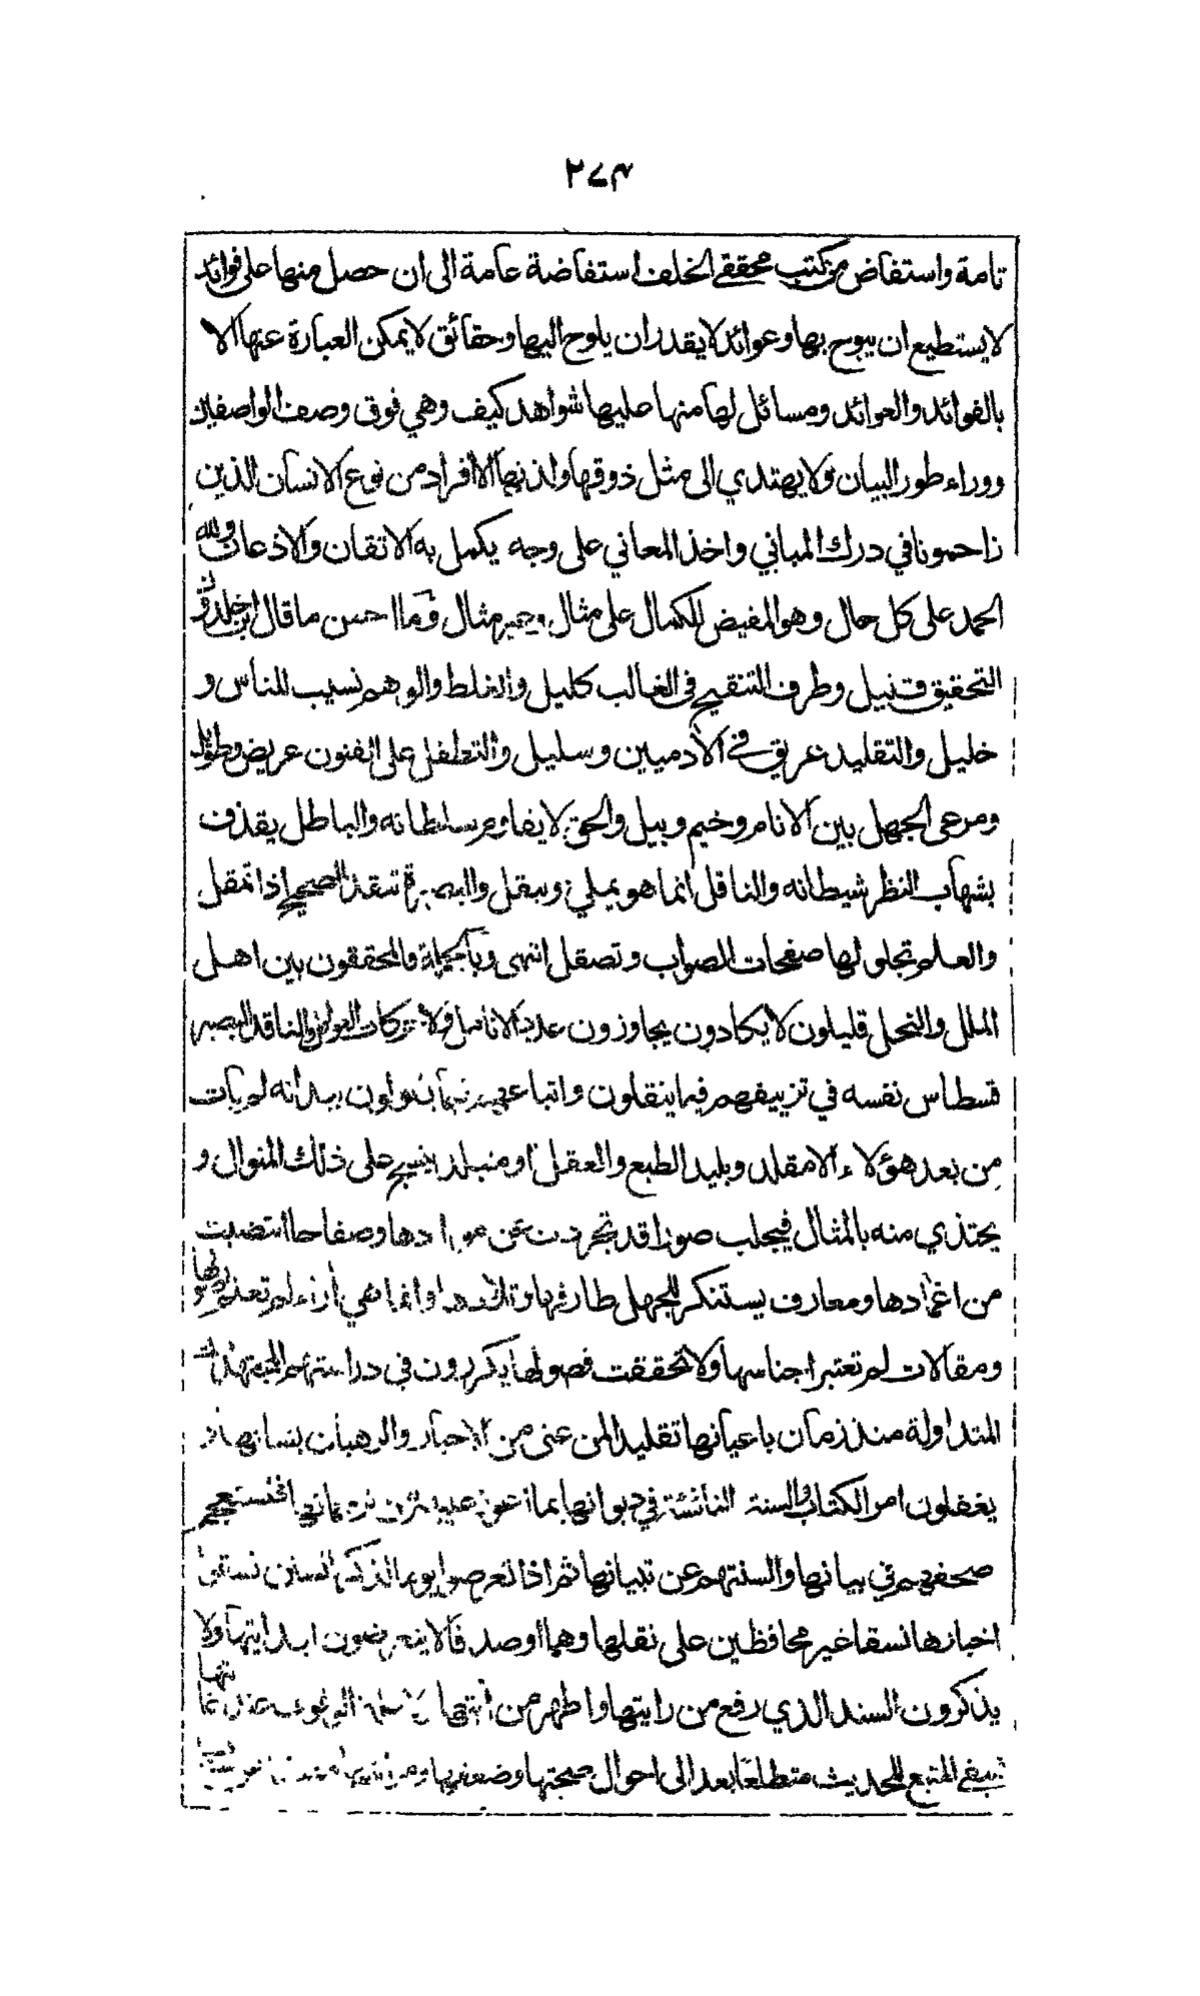 ٢٧٣
تامة واستفاض من كتب محققي الخلف استفاضة عامة الى ان حصل منها على فوائد
لا يستطيع ان يبوح بها وعوائد لا يقدر ان يلوح اليها وحقائق لا يمكن العبارة عنها الا
بالفوائد والعوائد ومسائل لها منها عليها شواهد كيف وهي فوق وصف الواصفين
ووراء طور البيان ولا يهتدي الى مثل ذوقها ولذتها الا افراد من نوع الانسان الذين
زاحمونا في درك المباني واخذ المعاني على وجه يكمل به الاتقان والاذعان ولله
الحمد على كل حال وهو المفيض للكمال على مثال وغير مثال وما احسن ما قال ابن خلدون
التحقيق قليل وطرف التنقيح في الغالب كليل والغلط والوهم نسيب للناس و
خليل والتقليد عريق في الآدميين وسليل والتطفل على الفنون عريض وطويل
ومرعى الجهل بين الانام وخيم وبيل والحق لا يقاوم سلطانه والباطل يقذف
بشهاب النظر شيطانه والناقل انما هو يملي وينقل والبصيرة تنقد الصحيح اذا تمقل
والعلم تجلو لها صفحات الصواب وتصقل انتهى وبالجملة فالمحققون بين اهل
الملل والنحل قليلون لا يكادون يجاوزون عدد الانامل ولا حركات العوامل والناقد البصير
قسطاس نفسه في تزييفهم فيما ينقلون واتباعهم فيما يقولون بيد انه لم يأت
من بعد هؤلاء الا مقلد وبليد الطبع والعقل او متبلد ينسج على ذلك المنوال و
يحتذي منه بالمثال فيجلب صورا قد تجردت عن موادها وصفاحا انتضيت
من اغمادها ومعارف يستنكر للجهل طارفها وتلادها وانما هي آراء لم تعلم اصولها
ومقالات لم تعتبر اجناسها ولا تحققت فصولها يكررون في دراستهم المجتهدات
المتداولة منذ زمان باعيانها تقليدا لمن عنى من الاحبار والرهبان بشانها
يغفلون امر الكتاب والسنة الناشئة في ديوانها بما اعوز عليهم من ترجمانها فتستعجم
صحفهم في بيانها والسنتهم عن تبيانها ثم اذا تعرضوا يوما لذكر السنن نسقوا
اخبارها نسقا غير محافظين على نقلها وهما او صدقا لا يتعرضون لبدايتها ولا
يذكرون السند الذي رفع من رايتها واظهر من آيتها
فيبقى المتبع للحديث متطلعا بعد الى احوال صحتها وضعفها